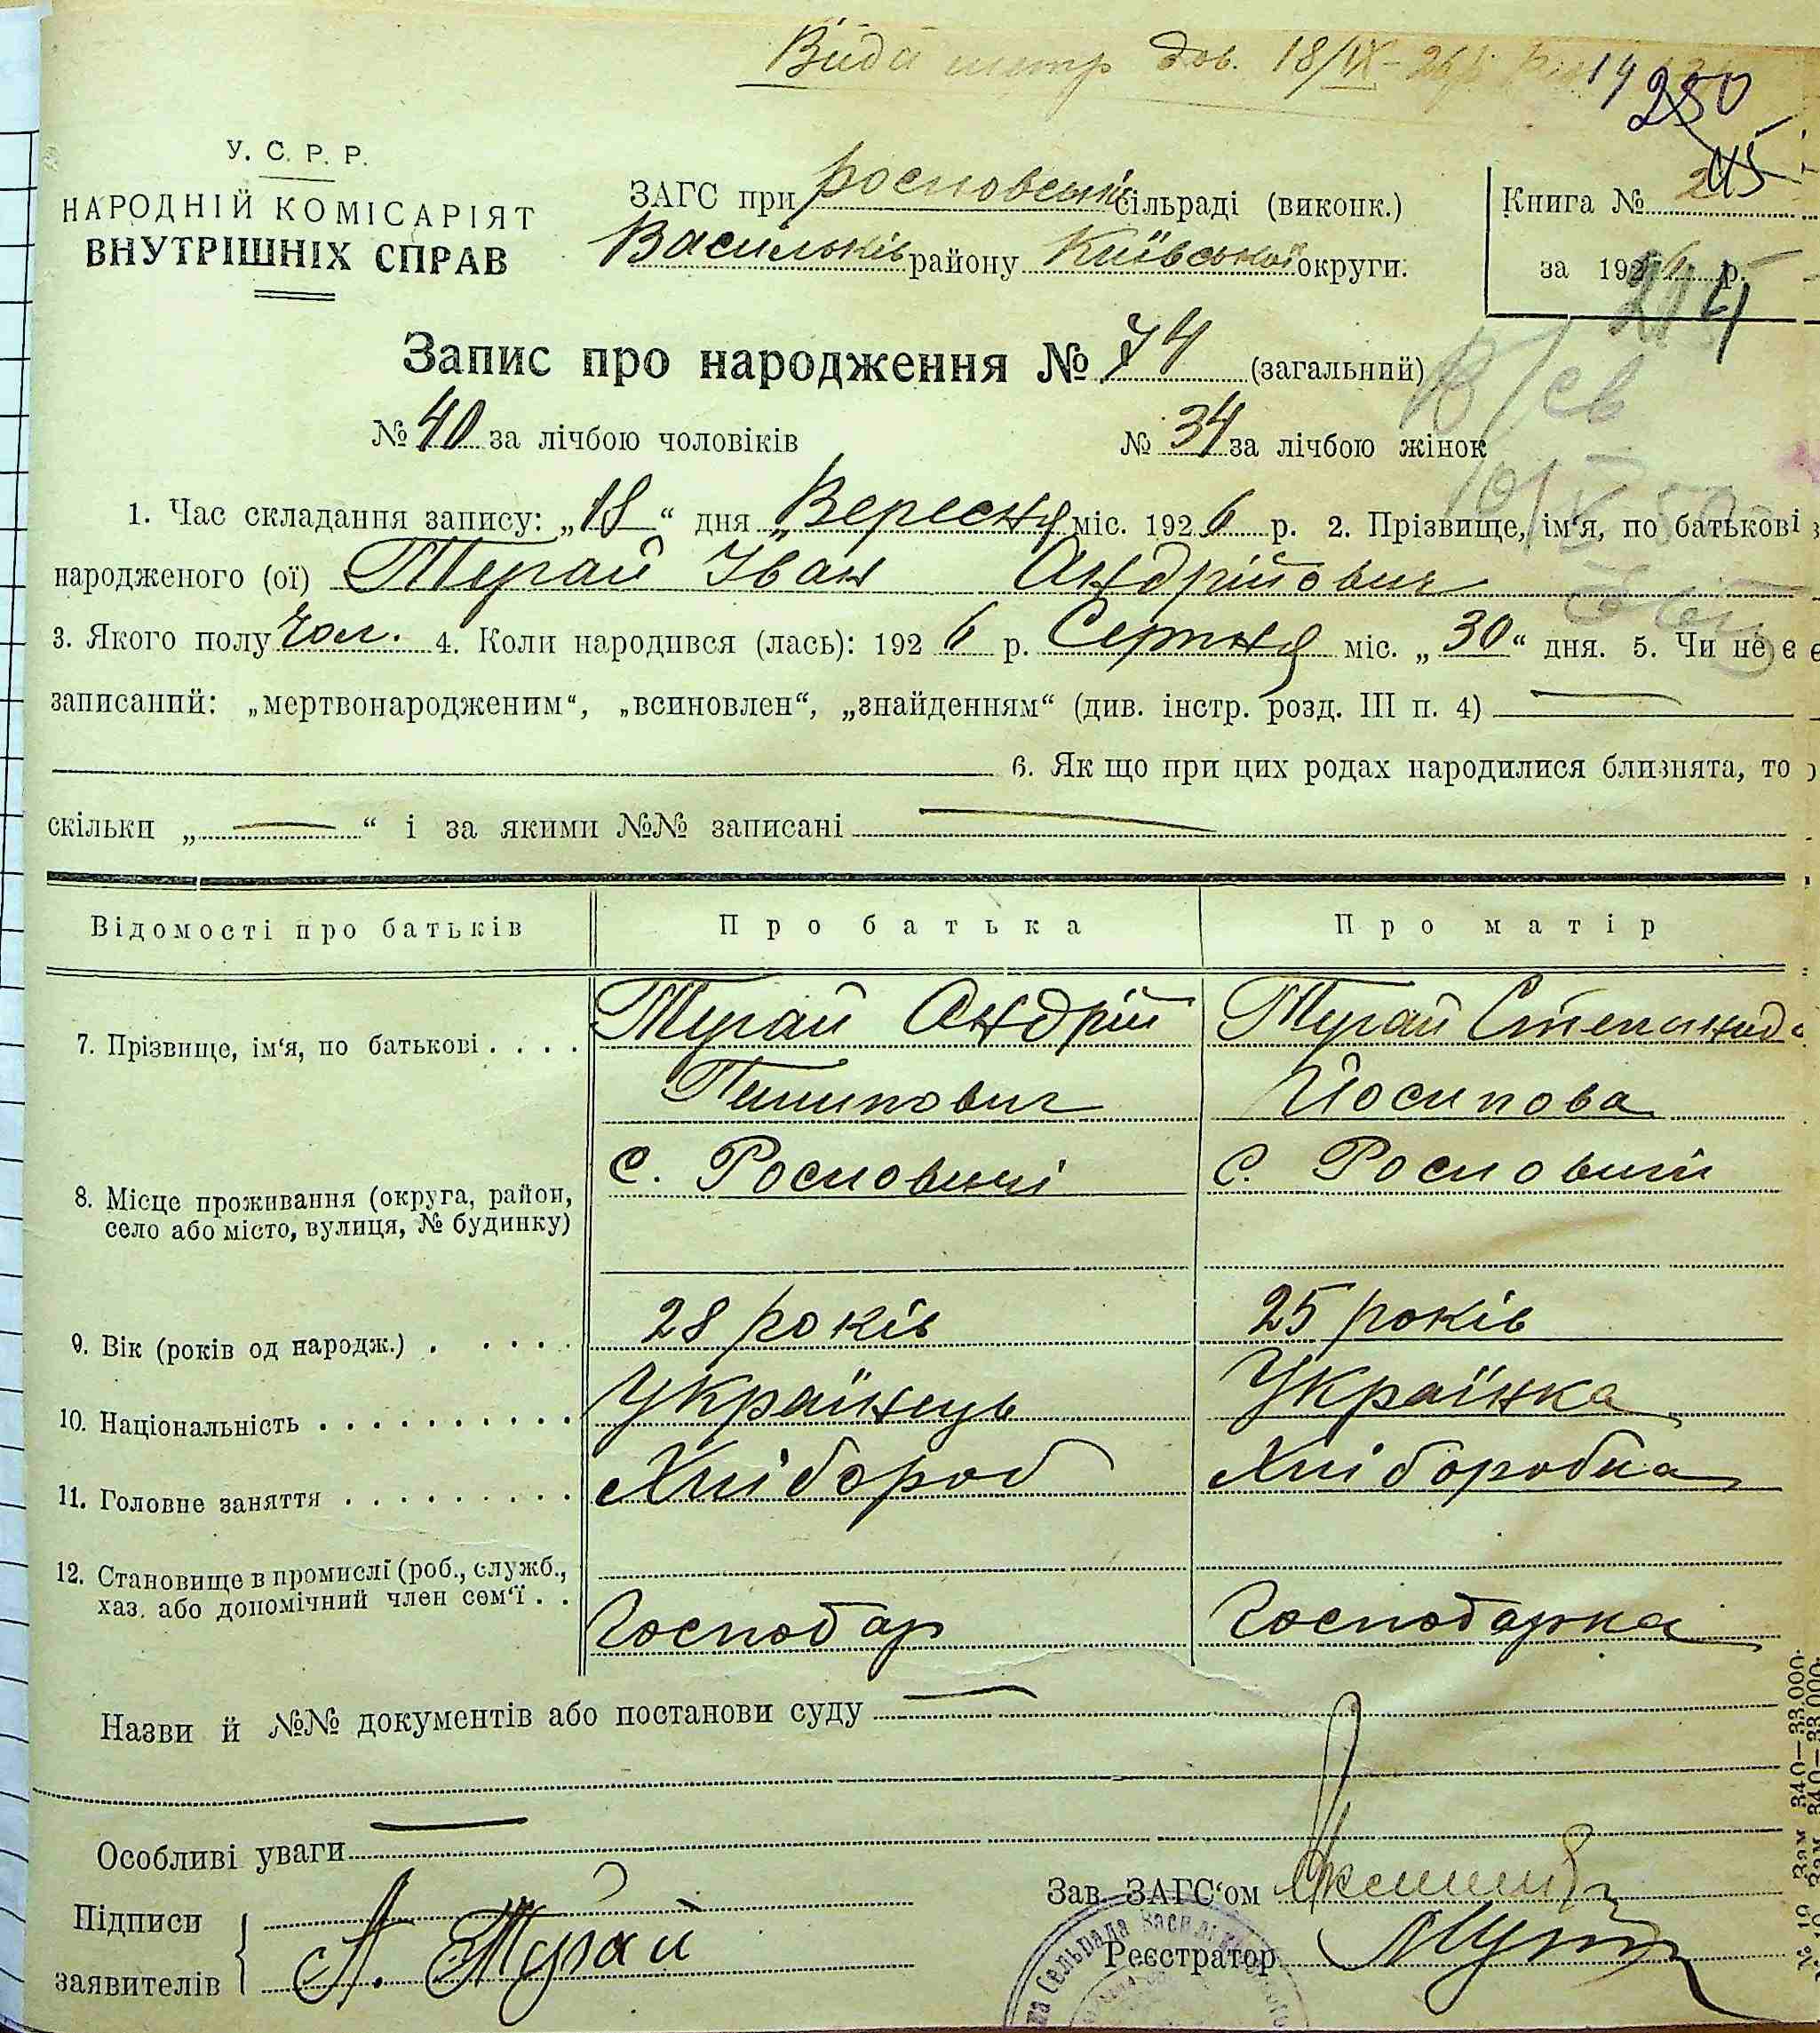 Видан метр дов. 18/IX-26р.
19
250
У. С. Р. Р.
НАРОДНІЙ КОМІСАРІЯТ
ВНУТРІШНІХ СПРАВ
ЗАГС при росновській сільраді (виконк.)
Васильків району Київської округи.
Книга № 245
за 1926 р.
Запис про народження № 74 (загальний)
№ 40 за лічбою чоловіків № 34 за лічбою жінок
10/V 50
1. Час складання запису: „18“ дня „Вересня міс. 1926 р. 2. Прізвище, ім‘я, по батькові
народженого (ої) Тугай Іван Андрійович
3. Якого полу Чол. 4. Коли народився (лась): 1926 р. Серпня міс. „30“ дня. 5. Чи не є
записаний: „мертвонародженим“, „всиновлен“, „знайденням“ (див. інстр. розд. III п. 4) —
6. Як що при цих родах народилися близнята, то
скільки „—“ і за якими №№ записані —
Відомості про батьків Про батька Про матір
7. Прізвище, ім‘я, по батькові . . . . Тугай Андрій Тугай Степанида
Пилипович Йосипова
8. Місце проживання (округа, район, с. Росновичі с. Росновичі
село або місто, вулиця, № будинку)
9. Вік (років од народж.) . . . . . 28 років 25 років
10. Національність . . . . . . . . . . Українець Українка
11. Головне заняття . . . . . . . . . Хлібороб Хлібробка
12. Становище в промислі (роб., служб.,
хаз. або допомічний член сем‘ї . . Господар Господарка
Назви й №№ документів або постанови суду —
Особливі уваги —
Підписи
заявителів А. Тугай
Зав. ЗАГС‘ом
Реєстратор
Сельрада Васильківського
№ 10 Зам 340—33.000.